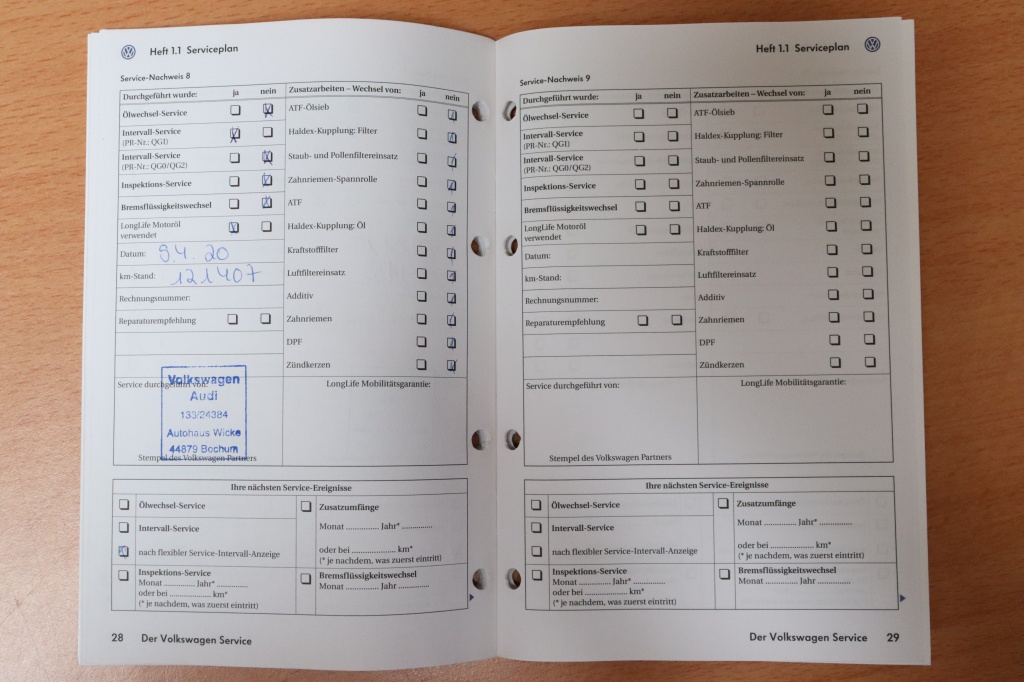 Heft 1.1 Serviceplan
Service-Nachweis 8
Durchgeführt wurde: ja nein
Ölwechsel-Service
Intervall-Service
(PR-Nr.: QG1)
Intervall-Service
(PR-Nr.: QG0/QG2)
Inspektions-Service
Bremsflüssigkeitswechsel
LongLife Motoröl
verwendet
Datum: 9.4.20
km-Stand: 121407
Rechnungsnummer:
Reparaturempfehlung
Zusatzarbeiten – Wechsel von: ja nein
ATF-Ölsieb
Haldex-Kupplung: Filter
Staub- und Pollenfiltereinsatz
Zahnriemen-Spannrolle
ATF
Haldex-Kupplung: Öl
Kraftstofffilter
Luftfiltereinsatz
Additiv
Zahnriemen
DPF
Zündkerzen
Service durchgeführt von:
Volkswagen
Audi
133/24384
Autohaus Wicke
44879 Bochum
Stempel des Volkswagen Partners
LongLife Mobilitätsgarantie:
Ihre nächsten Service-Ereignisse
Ölwechsel-Service
Intervall-Service
nach flexibler Service-Intervall-Anzeige
Inspektions-Service
Monat ............ Jahr* ...............
oder bei .................... km*
(* je nachdem, was zuerst eintritt)
Zusatzumfänge
Monat .............. Jahr* .............
oder bei .................... km*
(* je nachdem, was zuerst eintritt)
Bremsflüssigkeitswechsel
Monat ............ Jahr ...............
28 Der Volkswagen Service
Heft 1.1 Serviceplan
Service-Nachweis 9
Durchgeführt wurde: ja nein
Ölwechsel-Service
Intervall-Service
(PR-Nr.: QG1)
Intervall-Service
(PR-Nr.: QG0/QG2)
Inspektions-Service
Bremsflüssigkeitswechsel
LongLife Motoröl
verwendet
Datum:
km-Stand:
Rechnungsnummer:
Reparaturempfehlung
Zusatzarbeiten – Wechsel von: ja nein
ATF-Ölsieb
Haldex-Kupplung: Filter
Staub- und Pollenfiltereinsatz
Zahnriemen-Spannrolle
ATF
Haldex-Kupplung: Öl
Kraftstofffilter
Luftfiltereinsatz
Additiv
Zahnriemen
DPF
Zündkerzen
Service durchgeführt von:
Stempel des Volkswagen Partners
LongLife Mobilitätsgarantie:
Ihre nächsten Service-Ereignisse
Ölwechsel-Service
Intervall-Service
nach flexibler Service-Intervall-Anzeige
Inspektions-Service
Monat ............ Jahr* ...............
oder bei .................... km*
(* je nachdem, was zuerst eintritt)
Zusatzumfänge
Monat .............. Jahr* .............
oder bei .................... km*
(* je nachdem, was zuerst eintritt)
Bremsflüssigkeitswechsel
Monat ............ Jahr ...............
Der Volkswagen Service 29